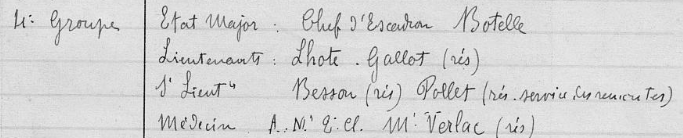 4e Groupe Etat Major : Chef d'Escadron Botelle
Lieutenants : Lhote . Gallot (rés)
s/ Lieut ts Besson (rés) Pollet (rés. service des remontes)
Médecin A. M. 2. Cl. Mr Verlac (rés)